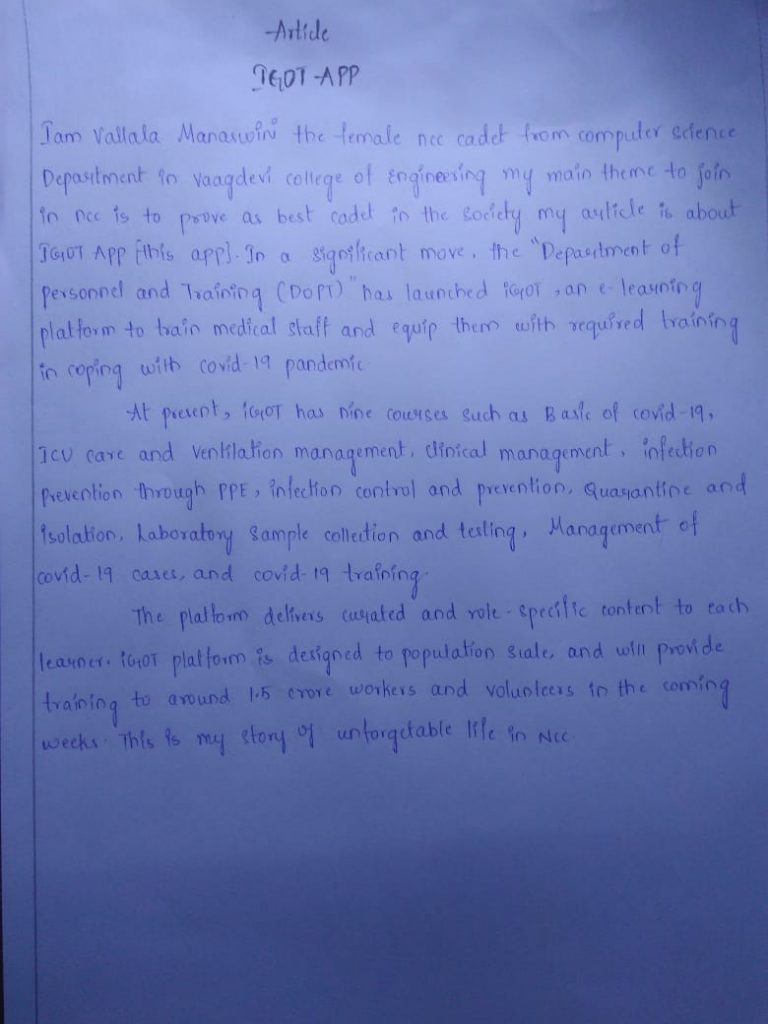 Article
IGOT-APP
Iam Vallala Manaswini the female ncc cadet from computer science
Department in vaagdevi college of Engineering my main theme to join
in ncc is to prove as best cadet in the society my article is about
IGOT App [this app]. In a significant move, the "Department of
personnel and Training (DOPT)" has launched iGOT, an e-learning
platform to train medical staff and equip them with required training
in coping with covid-19 pandemic
At present, iGOT has nine courses such as Basic of covid-19,
ICU care and ventilation management, clinical management, infection
prevention through PPE, infection control and prevention, Quarantine and
isolation, Laboratory sample collection and testing, Management of
covid-19 cases, and covid-19 training.
The platform delivers curated and role-specific content to each
learner. iGOT platform is designed to population scale, and will provide
training to around 1.5 crore workers and volunteers in the coming
weeks. This is my story of unforgetable life in Ncc.